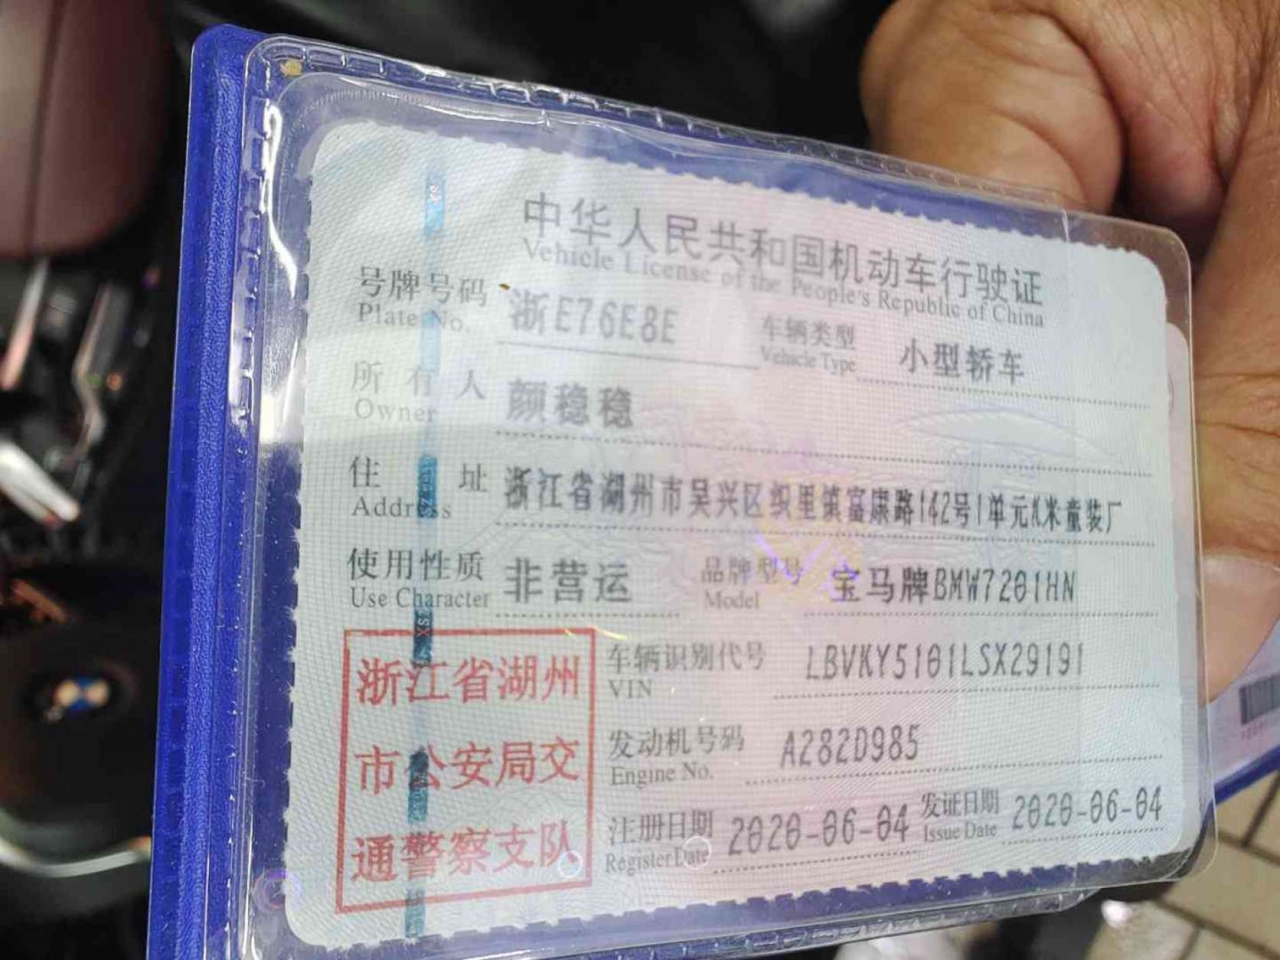 中华人民共和国机动车行驶证
Vehicle License of the People's Republic of China
号牌号码 浙E76E8E 车辆类型 小型轿车
Plate No. Vehicle Type
所有人 颜稳稳
Owner
住址 浙江省湖州市吴兴区织里镇富康路142号1单元K米童装厂
Address
使用性质 非营运 品牌型号 宝马牌BMW7201HN
Use Character Model
浙江省湖州
市公安局交
通警察支队
车辆识别代号 LBVKY5101LSX29191
VIN
发动机号码 A282D985
Engine No.
注册日期 2020-06-04 发证日期 2020-06-04
Register Date Issue Date